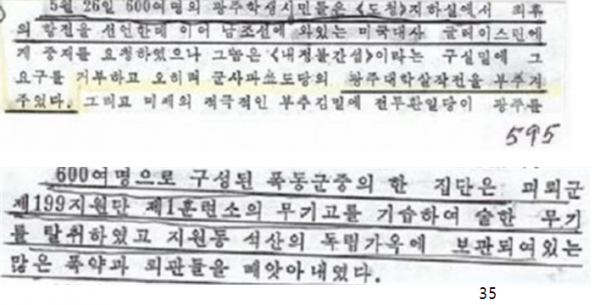 5월 26일 600여명의 광주학생시민들은 《도청》지하실에서 최후
의 항전을 선언한데 이어 남조선에 와있는 미국대사 글레이스틴에
게 중재를 요청하였으나 그놈은 《내정불간섭》이라는 구실밑에 그
요구를 거부하고 오히려 군사파쑈도당의 광주대학살작전을 부추겨
주었다. 그리고 미제의 적극적인 부추김밑에 전두환일당이 광주를
595
600여명으로 구성된 폭동군중의 한 집단은 괴뢰군
제199지원단 제1훈련소의 무기고를 기습하여 숱한 무기
를 탈취하였고 지원동 석산의 독립가옥에 보관되여있는
많은 폭약과 뢰관들을 빼앗아내였다.
35